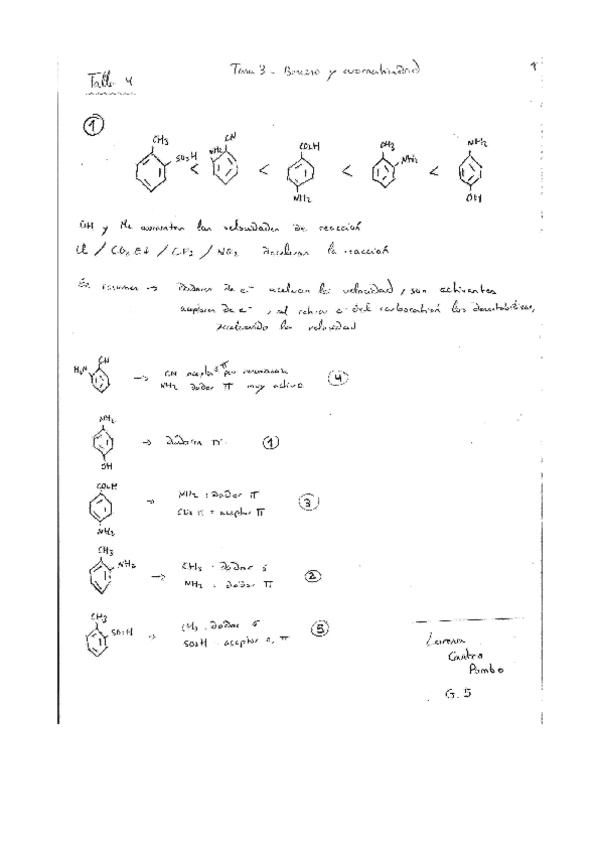 Tema 3 - Benceno y aromaticidad
Taller 4
1
CH3 SO3H < NH2 CN < CO2H NH2 < CH3 NH2 < NH2 OH
OH y Me aumentan las velocidades de reacción
Cl / CO2Et / CF3 / NO2 desaceleran la reacción
En resumen → dadores de e- aceleran la velocidad, son activantes
aceptores de e-, al retirar e- del carbocatión los desestabilizan,
la velocidad
H2N CN → CN aceptor π por resonancia
NH2 dador π muy activo 4
NH2 OH → dadores π 1
CO2H NH2 → NH2 : dador π
aceptor π 3
CH3 NH2 → CH3 : dador σ
NH2 : dador π 2
CH3 SO3H → CH3 : dador σ
SO3H : aceptor σ, π 5
Castro
Pombo
G. 5